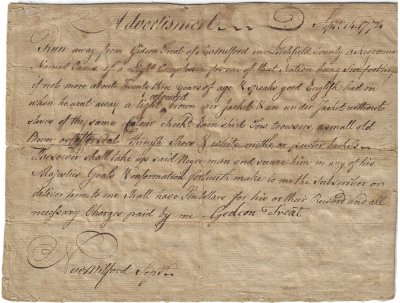 Advertisment Sept. 14. 1774
Run away from Gideon Treat of Newmilford in Litchfield County a Negrow
Named Ceasar of a Light Complexion for one of that Nation being
if not more about Twenty five years of age & speaks good English had on
when he went away a Light Coloured Brown upper Jacket & an under Jacket without
slives of the same Colour Check Linen Shirt Tow trowsers a small old
Bever or felt Hat Trungh Shoes & white mettle or pewter buckels
Whosoever shall take up said Negro man and secure him in any of his
Majesties Goals & information forthwith make to me the Subscriber or
deliver him to me Shall have Ten Dollars for his or their Reward and all
necessary Charges paid by me Gedeon Treat
New Milford Sept.